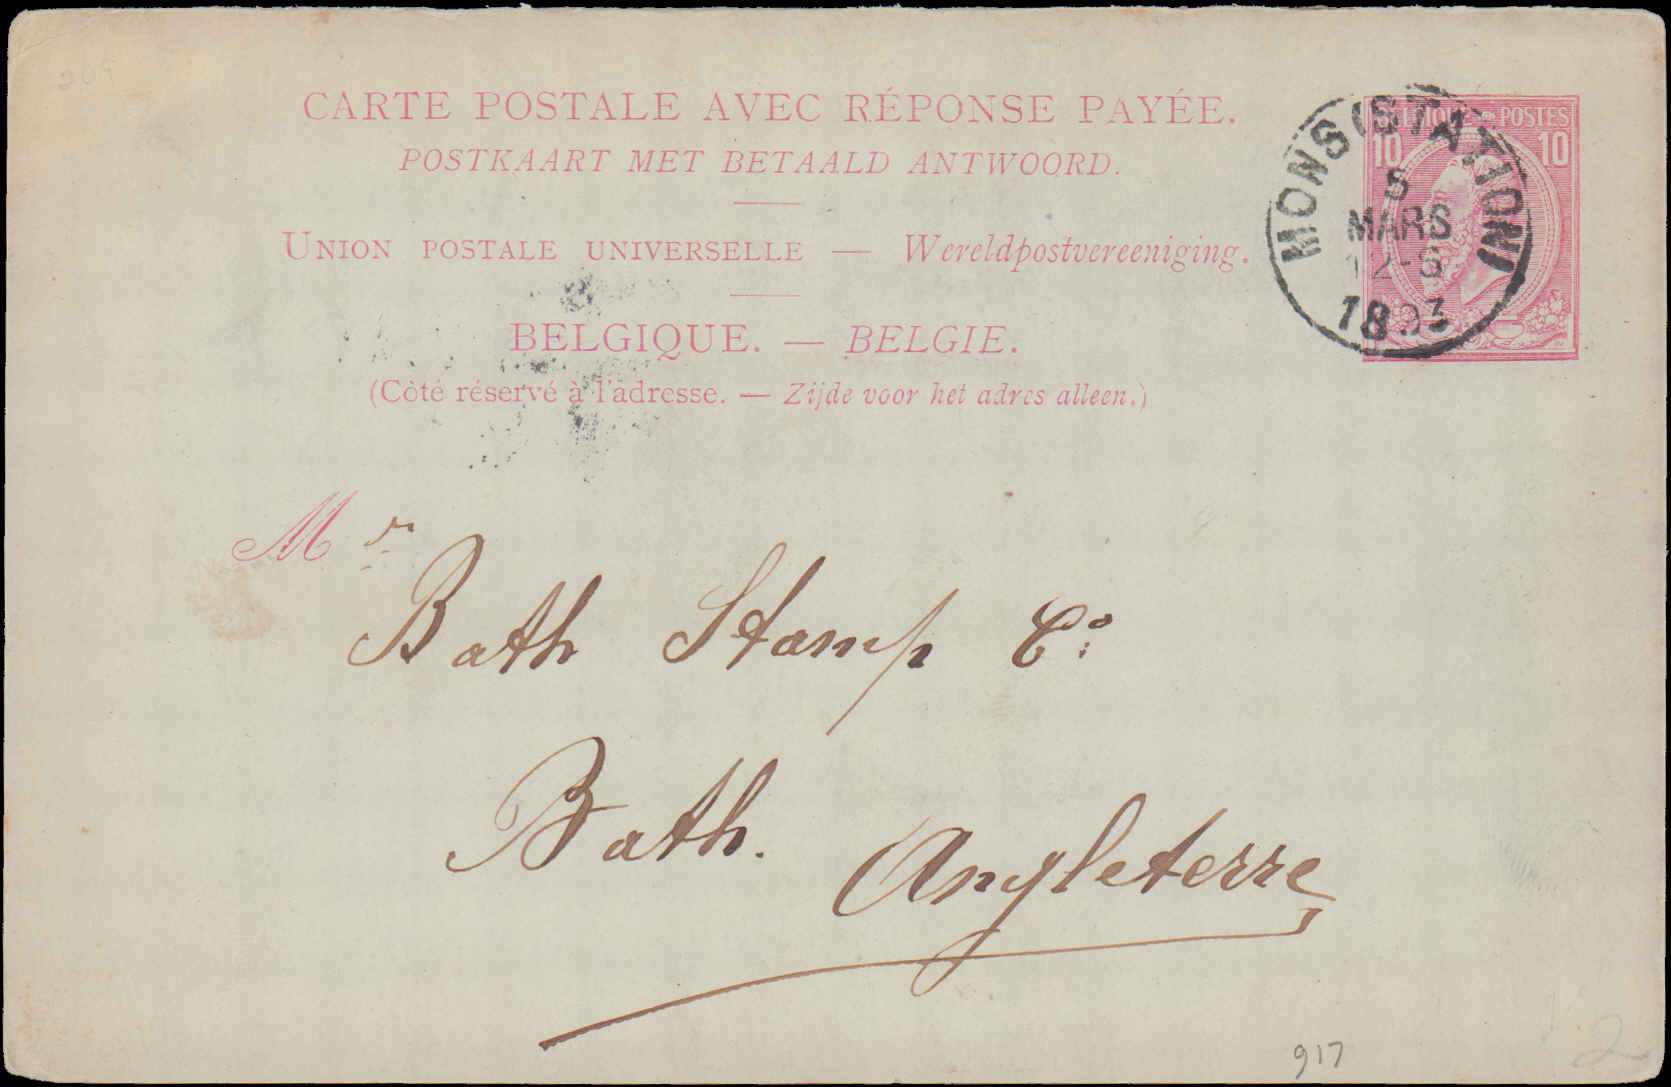 CARTE POSTALE AVEC RÉPONSE PAYÉE.
POSTKAART MET BETAALD ANTWOORD.
UNION POSTALE UNIVERSELLE — Wereldpostvereeniging.
BELGIQUE. — BELGIE.
(Côté réservé à l'adresse. — Zijde voor het adres alleen.)
BELGIQUE POSTES
10 10
MONS (STATION)
5
MARS
12-6
1893
Mr
Bath Stamp Co
Bath.
Angleterre
917
2